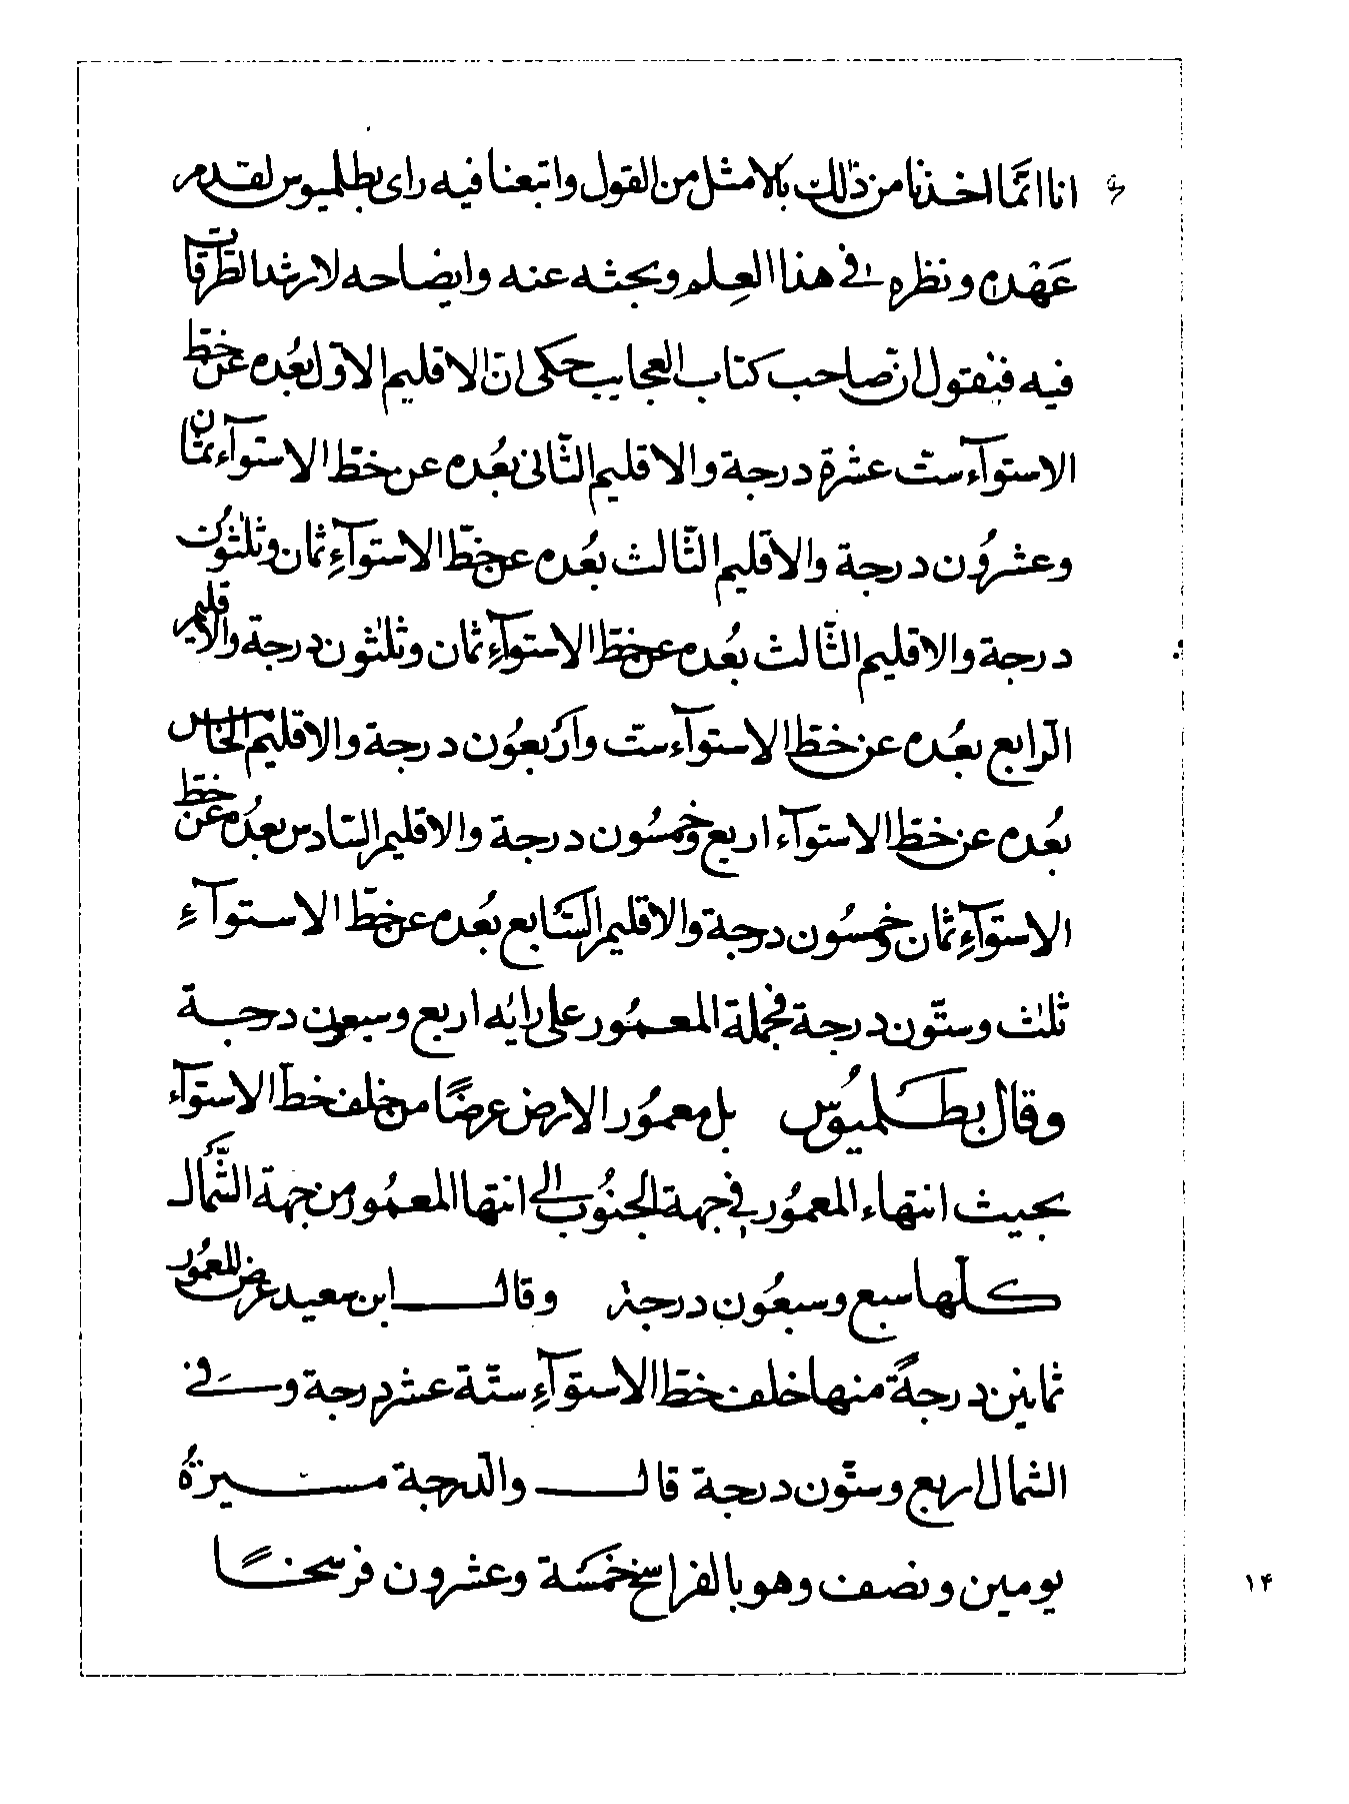 انا انّما اخذنا من ذٰلك بالامثل من القول واتبعنا فيه راى بطلميوس لقدم
عَهْده ونظره فى هذا العِلم وبحثه عنه وايضاحه لارشد الطّرقات
فيه فنقول انّ صاحب كتاب العجايب حكى انّ الاقليم الاوّل بعُده عن خطّ
الاستوآء ستّ عشرة درجة والاقليم الثّانى بعُده عن خطّ الاستوآء ثمان
وعشرُون درجة والاقليم الثّالث بعُده عن خطّ الاستوآءِ ثمان وثلٰثُون
درجة والاقليم الثّالث بعُده عن خطّ الاستوآءِ ثمان وثلٰثون درجة والاقليم
الرّابع بعُده عن خطّ الاستوآء ستّ واربعُون درجة والاقليم الخامس
بعُده عن خطّ الاستوآء اربع وخمسُون درجة والاقليم السّادس بعدُه عن خطّ
الاستوآءِ ثمان وخمسُون درجة والاقليم السّابع بعُده عن خطّ الاستوآءِ
ثلٰث وستّون درجة فجملة المعمُور على رايُه اربع وسبعون درجة
وقال بطلميُوس بل معمُور الارض عرضًا من خلف خطّ الاستوآء
بحيث انتهاء المعمُور فى جهة الجنُوب الى انتها المعمُور من جهة الشّمال
كلّها سبع وسبعُون درجة وقال ابن سعيد عرض المعمُور
ثمانين درجةً منها خلف خطّ الاستوآءِ ستّة عشر درجة وفى
الشمال اربع وستّون درجة قال والدّرجة مسيرةُ
يومين ونصف وهو بالفراسخ خمسَة وعشرون فرسخًا
١۴